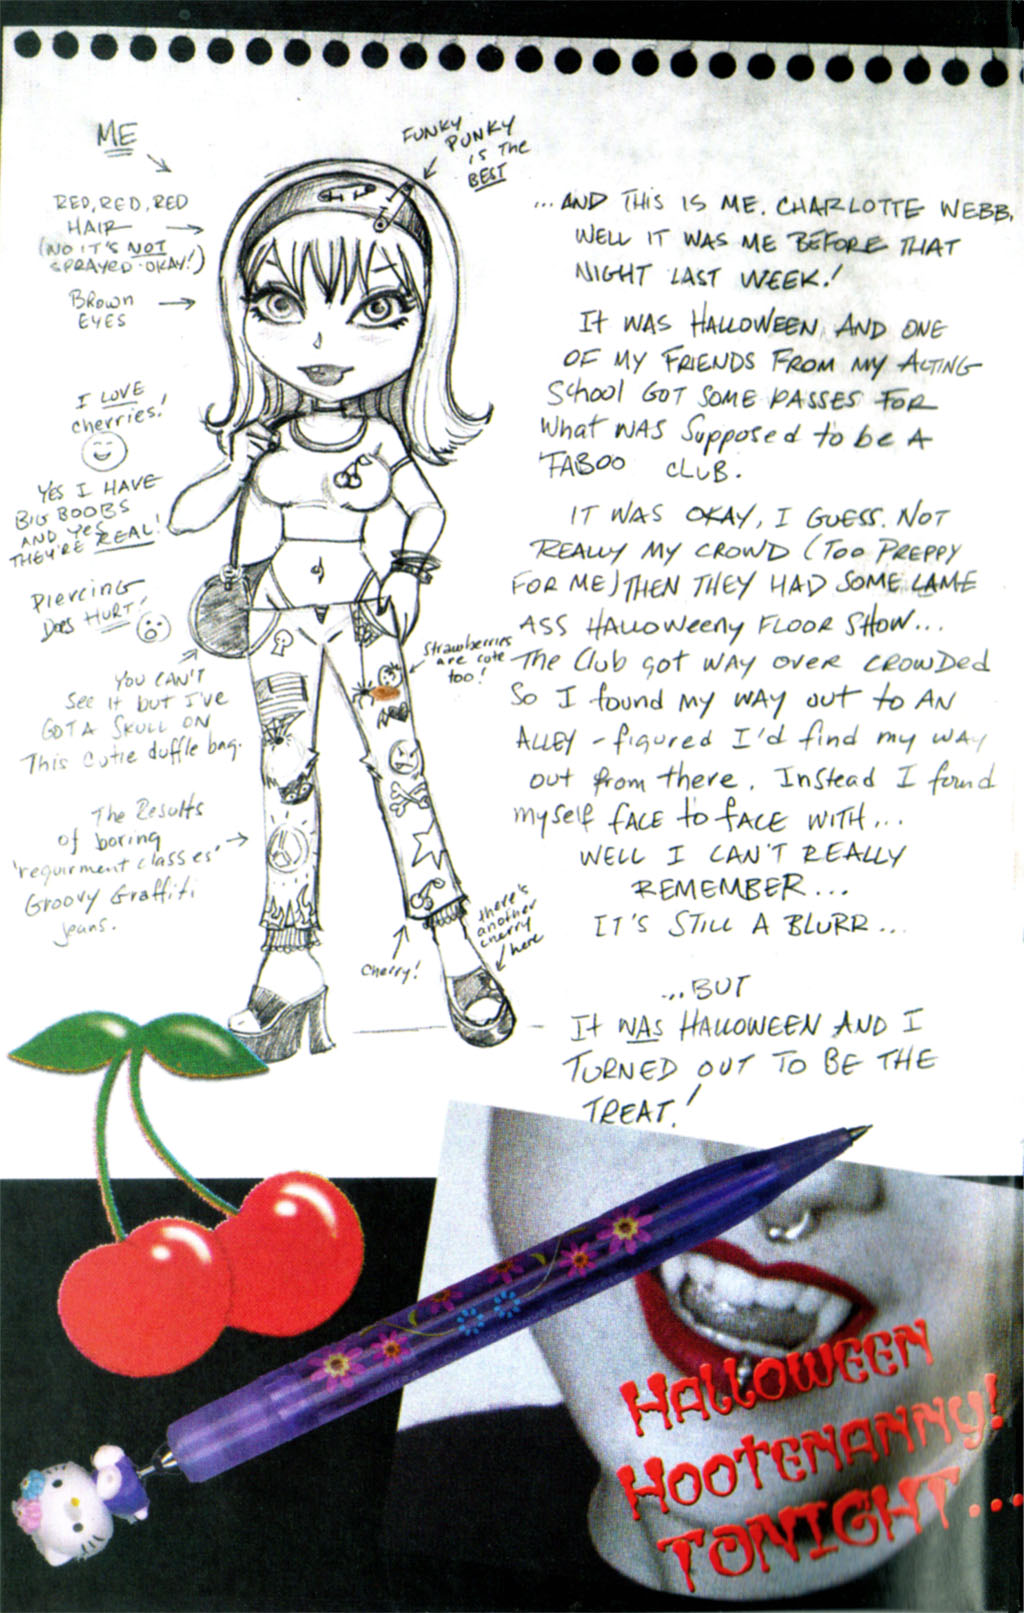 ME
RED, RED, RED
HAIR
(NO IT'S NOT
SPRAYED-OKAY!)
BROWN
EYES
I LOVE
cherries!
YES I HAVE
BIG BOOBS
AND YES
THEY'RE REAL!
PiERCiNG
DOES HURT!
YOU CAN'T
See it but I'VE
GOT A SKULL ON
This cutie duffle bag.
The Results
of boring
'requirment classes'
Groovy Graffiti
jeans.
FUNKY
PUNKY
is the
BEST
Strawberries
are cute
too!
Cherry!
there's
another
cherry
here
...AND THIS IS ME. CHARLOTTE WEBB,
WELL IT WAS ME BEFORE THAT
NIGHT LAST WEEK!
IT WAS HALLOWEEN, AND ONE
OF MY FRIENDS FROM MY ACTING
School GOT SOME PASSES FOR
What WAS Supposed to be A
TABOO CLUB.
IT WAS OKAY, I GUESS. NOT
REALLY MY CROWD (TOO PREPPY
FOR ME) THEN THEY HAD SOME LAME
ASS HALLOWEENY FLOOR SHOW...
The Club got WAY OVER CROWDED
So I found MY WAY out to AN
ALLEY - figured I'd find my way
out from there. Instead I found
myself FACE to FACE WITH...
WELL I CAN'T REALLY
REMEMBER...
IT'S STILL A BLURR...
...BUT
It WAS HALLOWEEN AND I
TURNED OUT TO BE THE
TREAT!
HALLOWEEN
HOOTENANNY!
TONIGHT...